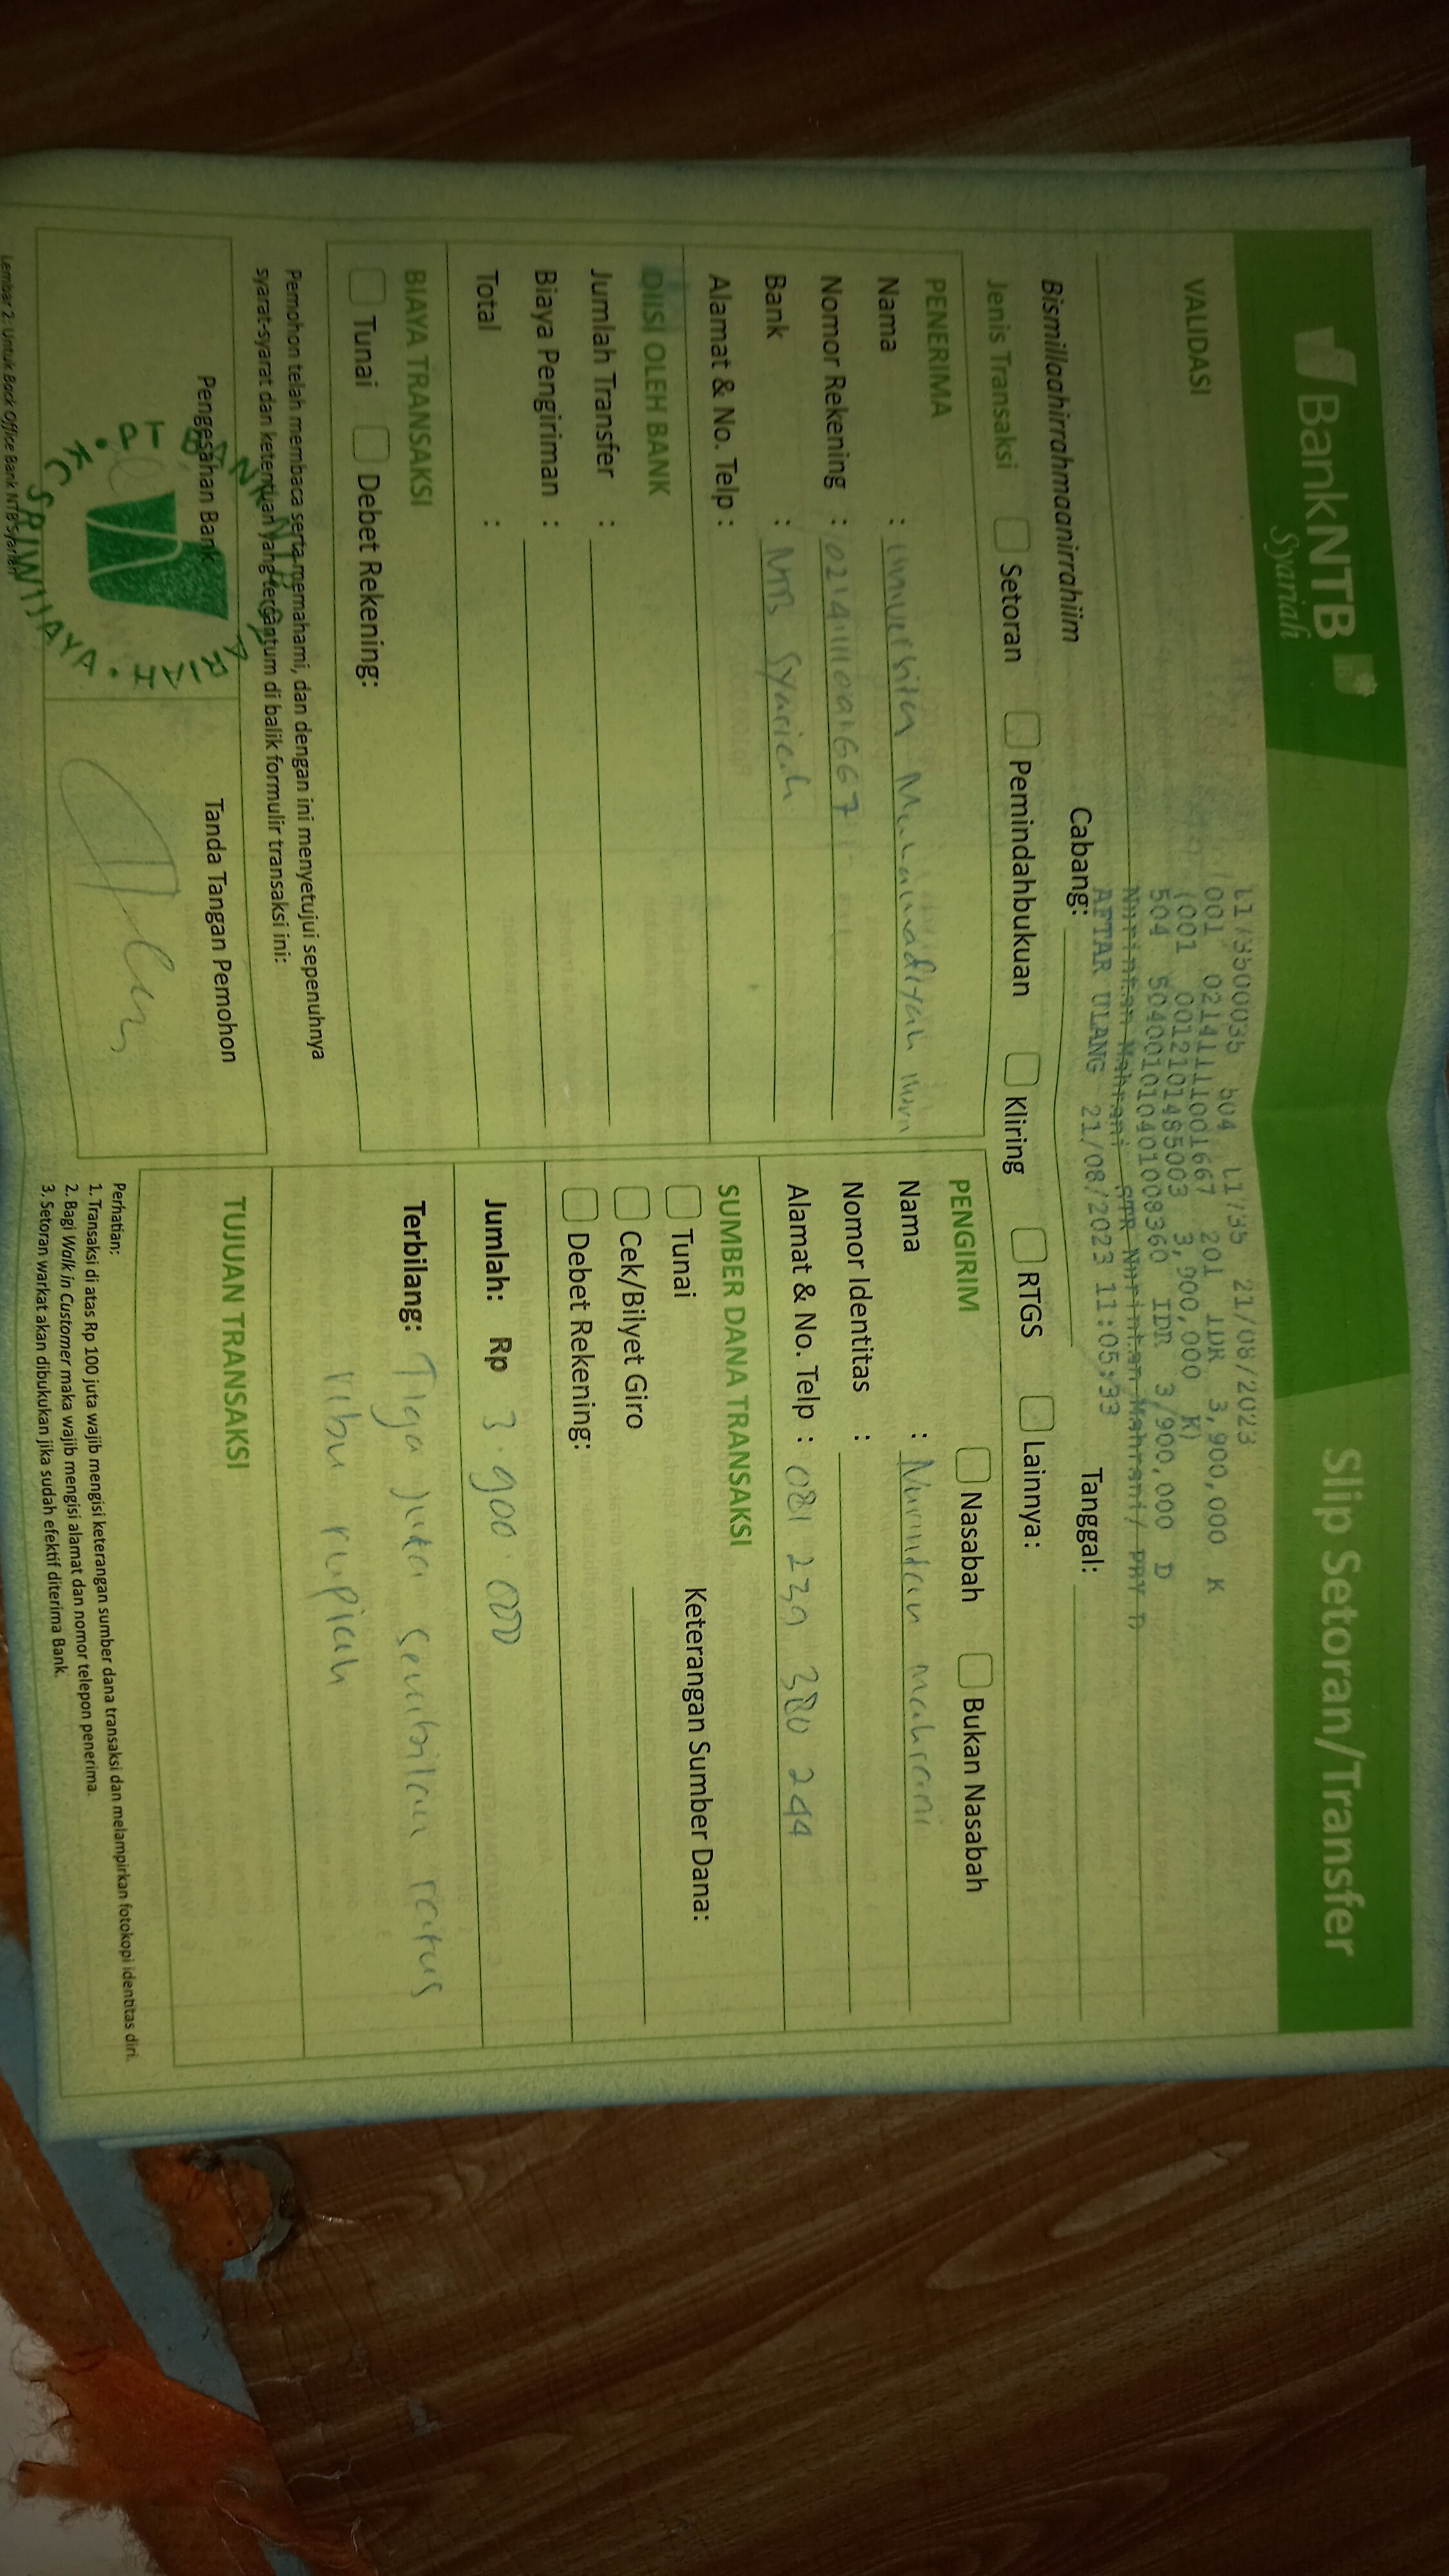 BankNTB
Syariah
Slip Setoran/Transfer
VALIDASI
L173500035 504 L1735 21/08/2023
/001 0214111001667 201 IDR 3,900,000 K
(001 0012101485003 3,900,000 K)
504 504001010401008360 IDR 3,900,000 D
Nurintan Mahrani STR Nurintan Mahrani/ PBY D
AFTAR ULANG 21/08/2023 11:05:33
Cabang:
Tanggal:
Bismillaahirrahmaanirrahiim
Jenis Transaksi
Setoran
Pemindahbukuan
Kliring
RTGS
Lainnya:
PENERIMA
Nama : Universitas Muhammadiyah
Nomor Rekening : 0214111001667
Bank : NTB Syariah
Alamat & No. Telp :
PENGIRIM
Nasabah
Bukan Nasabah
Nama : Nurintan mahrani
Nomor Identitas :
Alamat & No. Telp : 081 239 380 244
DIISI OLEH BANK
Jumlah Transfer :
Biaya Pengiriman :
Total :
SUMBER DANA TRANSAKSI
Tunai
Keterangan Sumber Dana:
Cek/Bilyet Giro
Debet Rekening:
BIAYA TRANSAKSI
Tunai
Debet Rekening:
Jumlah: Rp 3.900 000
Terbilang: Tiga juta sembilan ratus
ribu rupiah
Pemohon telah membaca serta memahami, dan dengan ini menyetujui sepenuhnya
syarat-syarat dan ketentuan yang tercantum di balik formulir transaksi ini:
TUJUAN TRANSAKSI
Pengesahan Bank
Tanda Tangan Pemohon
PT BANK NTB
KC SRIWIJAYA
Perhatian:
1. Transaksi di atas Rp 100 juta wajib mengisi keterangan sumber dana transaksi dan melampirkan fotokopi identitas diri.
2. Bagi Walk in Customer maka wajib mengisi alamat dan nomor telepon penerima.
3. Setoran warkat akan dibukukan jika sudah efektif diterima Bank.
Lembar 2: Untuk Back Office Bank NTB Syariah